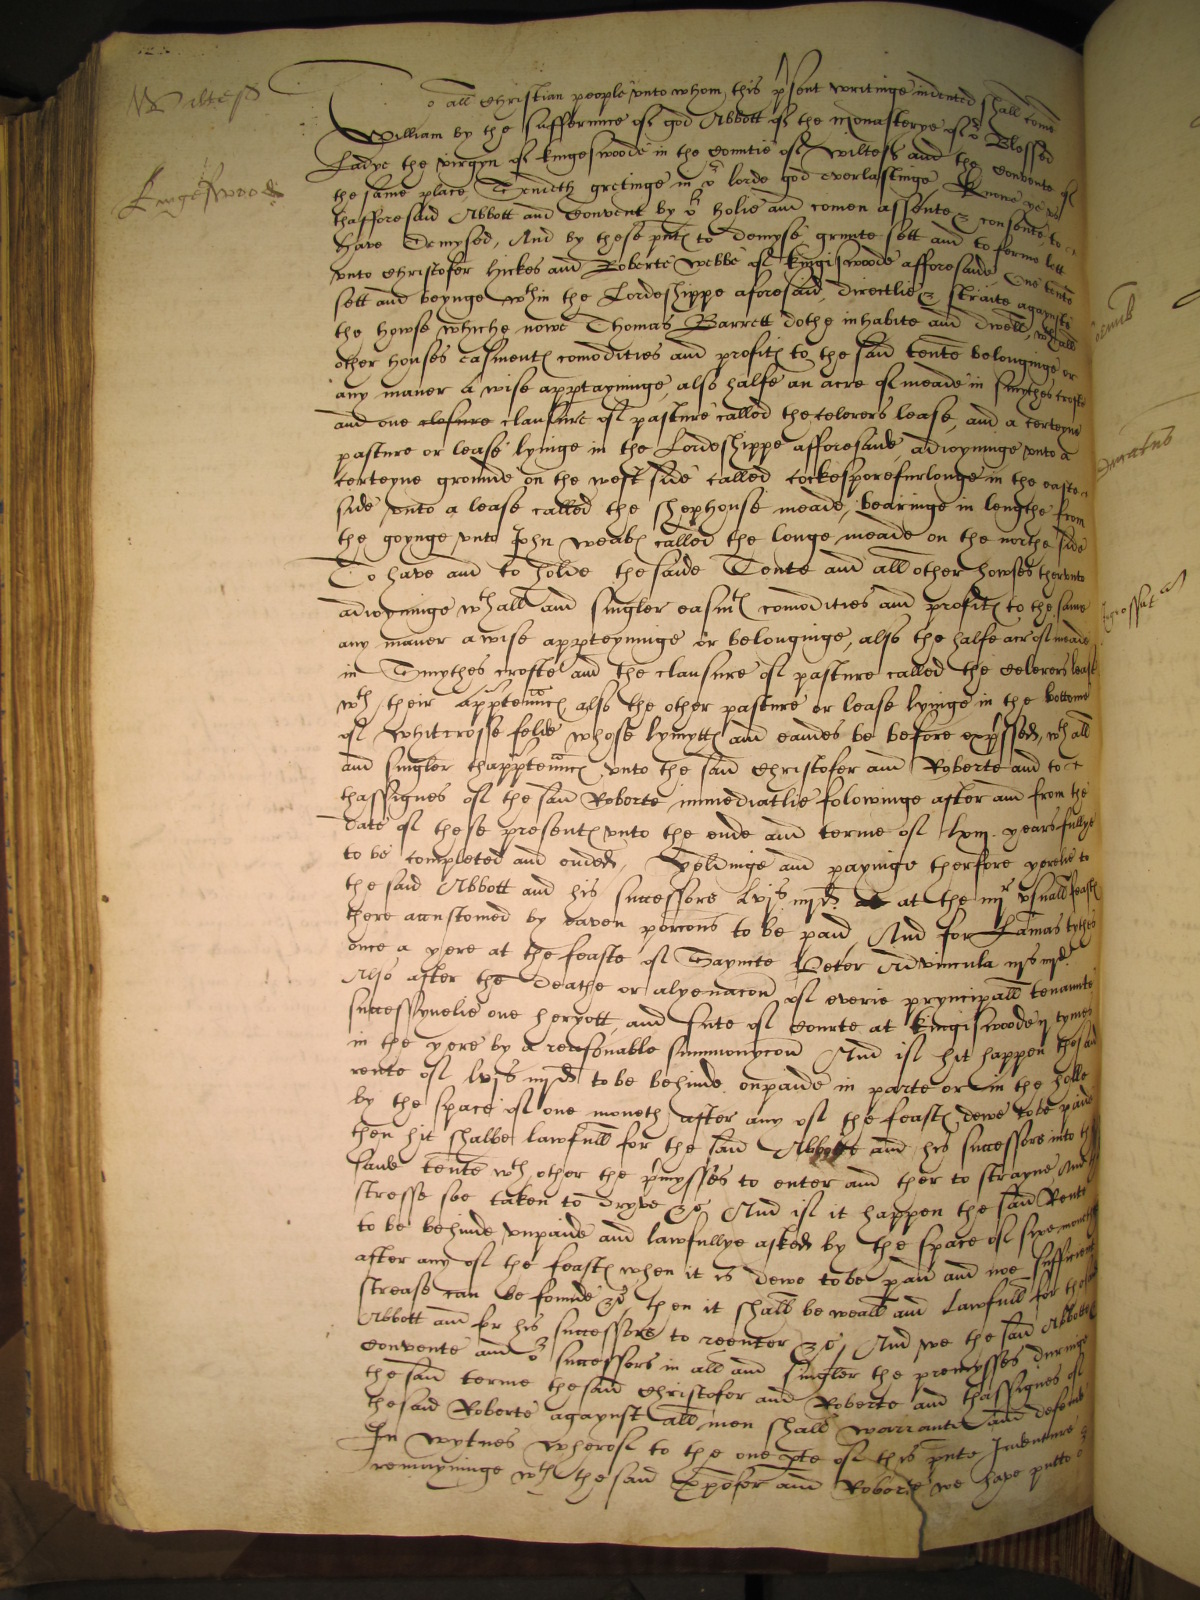 Wiltess
To all Christian people unto whom this psent writinge indented shall come
William by the sufferance of god Abbott of the Monasterye of or Blessed
Kingeswoode
Ladye the virgyn of kingeswoode in the countie of Wiltess and the Convente of
the same place, Sendeth gretinge in or lorde god everlastinge Knowe ye us
thafforesaid Abbott and Convent by or holie and comen assente & consente, to
have Demysed, And by these pntes to demyse graunte sett and to ferme lett
unto Christofer Hickes and Roberte Webbe of kingiswoode afforesaide, One tente
sett and beynge wthin the Lordeshippe aforesaid, directlie & straite agaynste
the howse whiche nowe Thomas Barrett dothe inhabite and dwell, wth all
other houses easmentes comodities and profites to the said tente belonginge or
any maner a wise apptayninge, also halfe an acre of meade in Smythes crofte
and one closure clausure of pasture called the celerers lease, and a certeyne
pasture or lease lyinge in the Lordeshippe afforesaide, adioyninge unto a
certeyne grounde on the west side called cockesporefurlonge in the easte
side unto a lease called the shephouse meade, bearinge in lengthe from
the goynge unto John Weabes called the longe meade on the northe side
To have and to holde the saide Tente and all other howses therunto
adioyninge wth all and singler easmtes comodities and profites to the same
any maner a wise appteyninge or belonginge, also the halfe acr of meade
in Smythes crofte and the clausure of pasture called the celerers lease
wth their apptennces also the other pasture or lease lyinge in the bottome
of Whitcrosse felde whose lymyttes and eandes be before expssed, wth all
and singler thapptennces unto the said Christofer and Roberte and to
thassignes of the said Roberte immediatlie folowinge after and from the
date of these presentes unto the ende and terme of lxiij. years fullye
to be completed and ended, Yeldinge and payinge therfore yerelie to
the said Abbott and his successors lvjs iiijd. at the iiijr usuall feastes
there accustomed by eaven porcons to be paid, And for Lamas tythes
once a yere at the feaste of Saynte Peter Advincula iijs iiijd.
Also after the deathe or alyenacon of everie pryncipall tenaunte
successyvelie one heryott, and sute of Courte at kingiswoode ij tymes
in the yere by a reasonable summonycon And if hit happen the said
rente of lvjs iiijd to be behinde onpaide in parte or in the holle
by the space of one moneth after any of the feastes dewe to be paide
then hit shalbe lawfull for the said Abbotte and his successors into the
saide tente wth other the pmysses to enter and ther to strayne, And
stresse soe taken to dryve &c And if it happen the said Rente
to be behinde unpaide and lawfullye asked by the space of sixe monethes
after any of the feastes when it is dewe to be paid and noe sufficient
strease can be founde &c, then it shall be weall and lawfull for the said
Abbott and for his successors to reenter &c, And we the said Abbott
Convente and or successors in all and singler the premysses duringe
the said terme the said Christofer and Roberte and thassignes of
the said Roberte agaynst all men shall warrante and defende
In wytnes wherof to the one pte of this pnte Indenture
remayninge wth the said Xpofer and Roberte we have putto